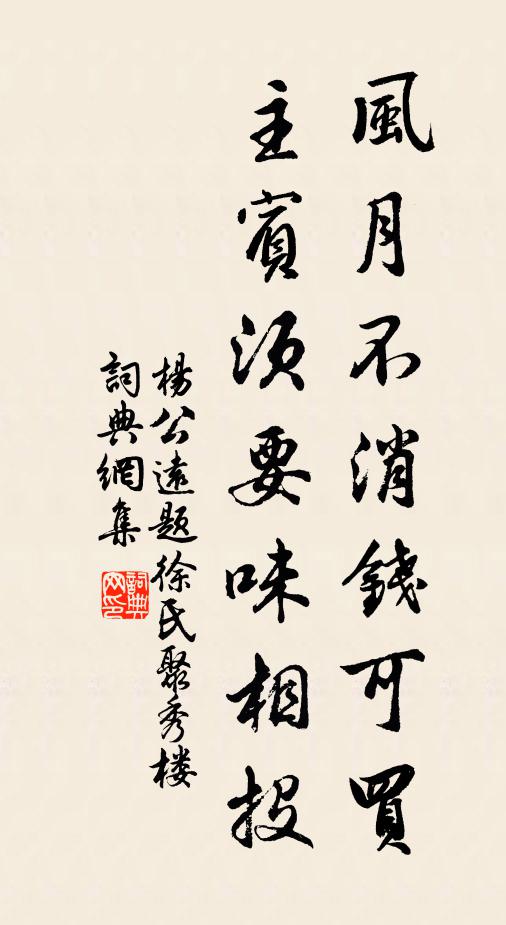 風月不消錢可買
主賓須要味相投
楊公遠題徐氏聚秀楼
詞典網集
詞典网印